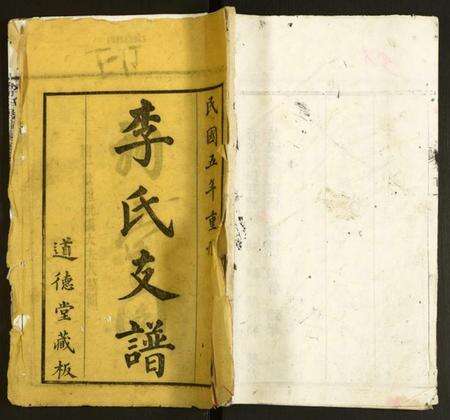 民國五年重
李氏支譜
道德堂藏板